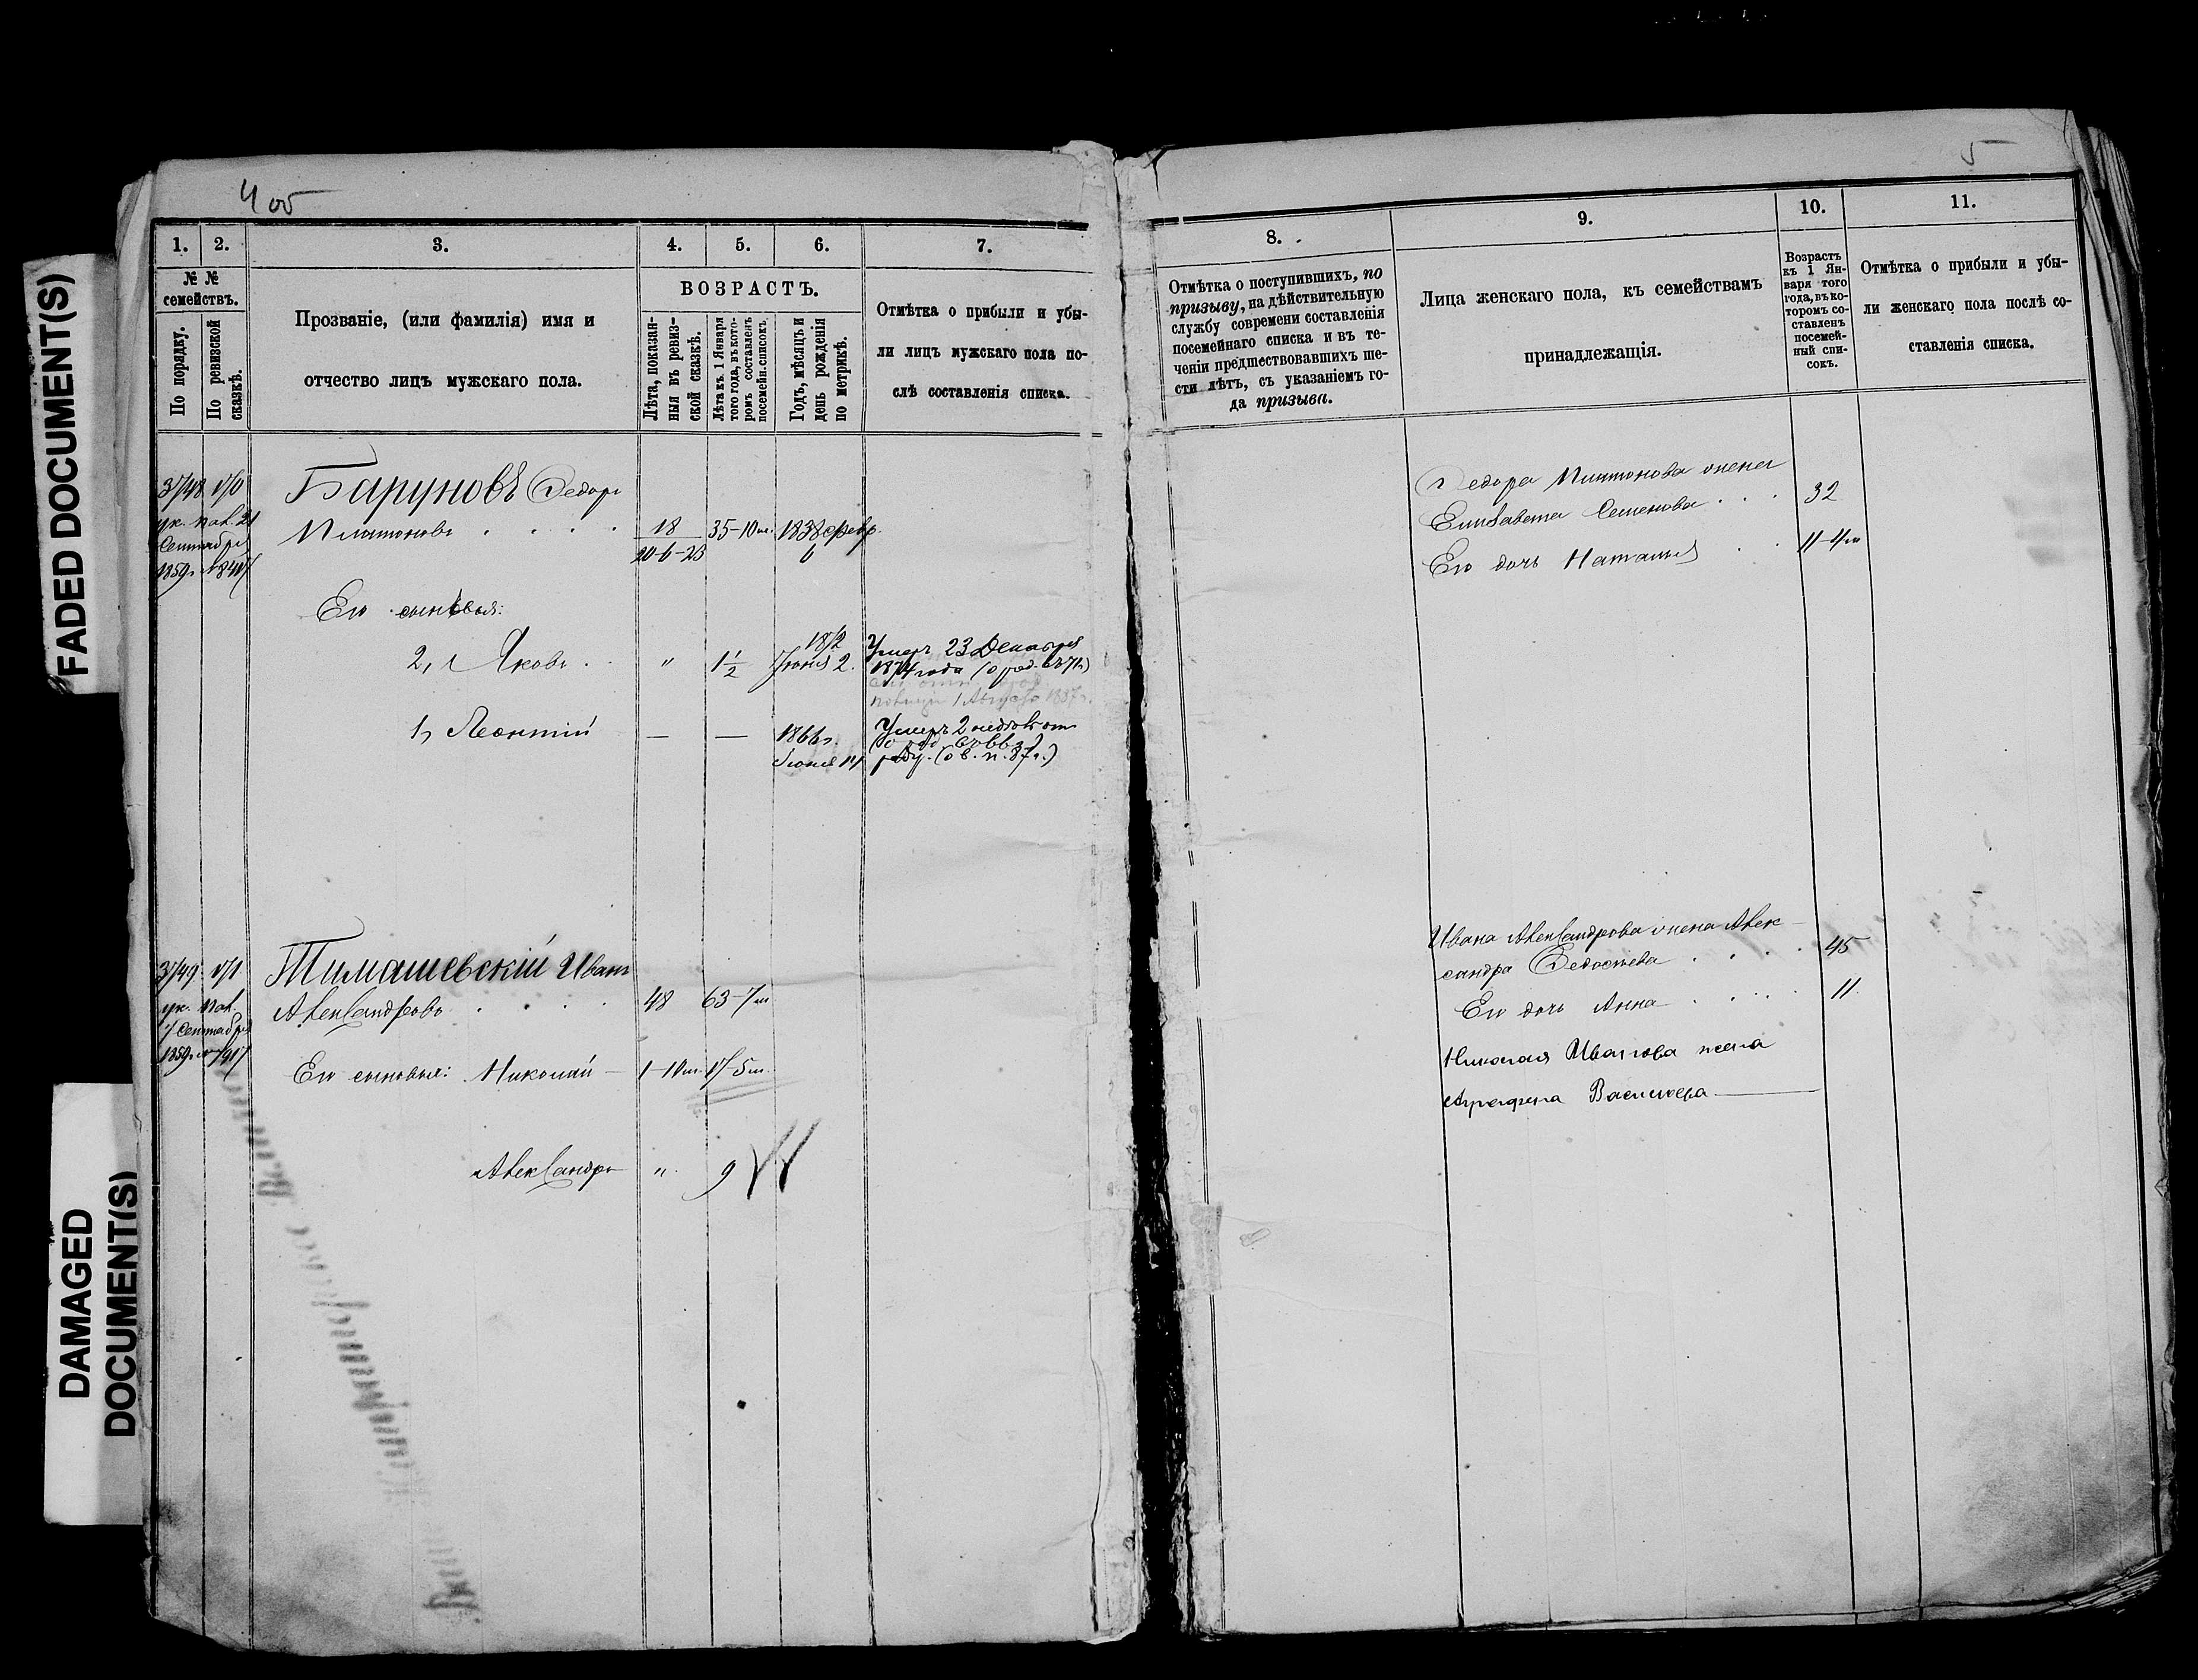 FADED DOCUMENT(S)
DAMAGED
DOCUMENT(S)
4 об
1.
2.
3.
4.
5.
6.
7.
№ №
семействъ.
По порядку.
По ревизской
сказкѣ.
Прозваніе, (или фамилія) имя и
отчество лицъ мужскаго пола.
ВОЗРАСТЪ.
Лѣта, показан-
ныя въ ревиз-
ской сказкѣ.
Лѣта къ 1 Января
того года, въ кото-
ромъ составленъ
посемейн. списокъ.
Годъ, мѣсяцъ и
день рожденія
по метрикѣ.
Отмѣтка о прибыли и убы-
ли лицъ мужскаго пола по-
слѣ составленія списка.
Баруновъ Федоръ
Платоновъ
18
35-10 м. 1838 Февр.
20-6-23
6
Сентября
1859 г.
Его сыновья:
2, Яковъ
"
1 1/2
Іюня 2.
Умеръ 23 Декабря
1874 года
1, Леонтій
—
—
1866 г.
Умеръ 2 недѣль от
роду.
Тимашевскій Иванъ
Александровъ
48
63-7 м
Сентября
1859 г.
Его сыновья: Николай
1-10 м.
Александръ
"
9
5
8.
9.
10.
11.
Отмѣтка о поступившихъ, по
призыву, на дѣйствительную
службу современи составленія
посемейнаго списка и въ те-
ченіи предшествовавшихъ ше-
сти лѣтъ, съ указаніемъ го-
да призыва.
Лица женскаго пола, къ семействамъ
принадлежащія.
Возрастъ
къ 1 Ян-
варя того
года, въ ко-
торомъ со-
ставленъ
посемей-
ный спи-
сокъ.
Отмѣтка о прибыли и убы-
ли женскаго пола послѣ со-
ставленія списка.
Федора Платонова жена
Елизавета Семенова
32
Его дочь Наталья
11-4 м
Ивана Александрова жена Алек-
сандра Федосѣева
45
Его дочь Анна
11
Николая Иванова жена
Аграфена Васильева